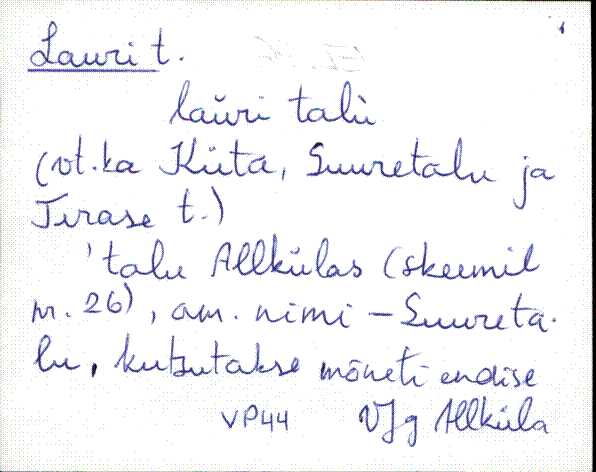 Lauri t.
lauri talu
(vt. ka Küta, Suuretalu ja
Terase t.)
'talu Allkülas (skeemil
nr. 26), am. nimi – Suureta-
lu, kutsutakse mõneti endise
VP44 VJg Allküla